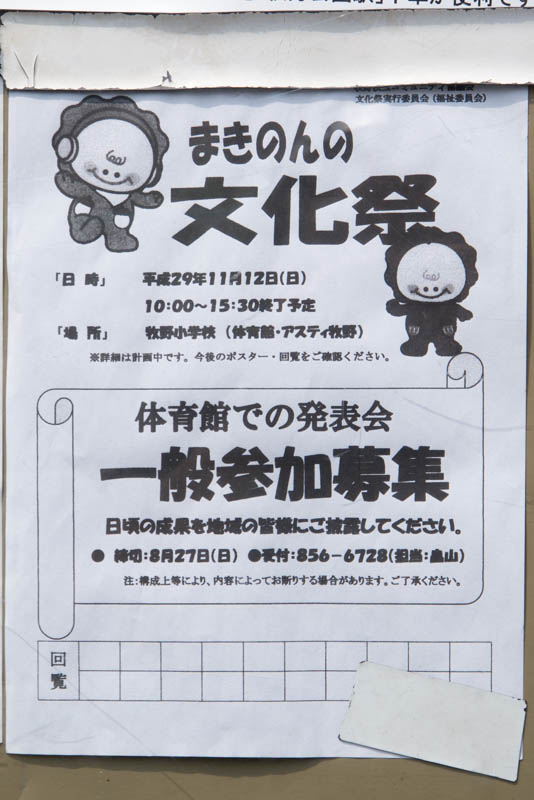 文化祭実行委員会(福祉委員会)
まきのんの
文化祭
「日 時」 平成29年11月12日(日)
10:00~15:30終了予定
「場 所」 牧野小学校 (体育館・アスティ牧野)
※詳細は計画中です。今後のポスター・回覧をご確認ください。
体育館での発表会
一般参加募集
日頃の成果を地域の皆様にご披露してください。
● 締切:8月27日(日) ●受付:856-6728(担当:畠山)
注:構成上等により、内容によってお断りする場合があります。ご了承ください。
回覧